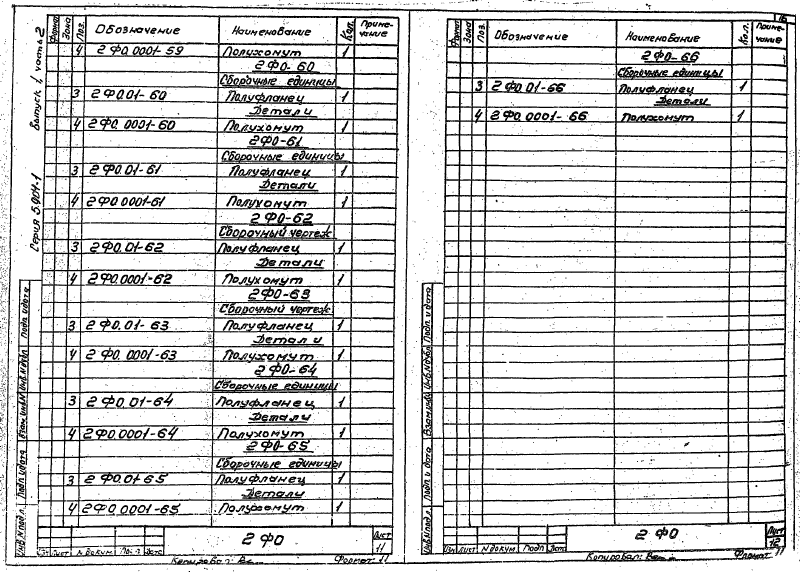 Серия 5.904-1 Выпуск 1, часть 2
Формат Зона Поз. Обозначение Наименование Кол. Примечание
4 2ФО.0001-59 Полухомут 1
2ФО-60
Сборочные единицы
3 2ФО.01-60 Полуфланец 1
Детали
4 2ФО.0001-60 Полухомут 1
2ФО-61
Сборочные единицы
3 2ФО.01-61 Полуфланец 1
Детали
4 2ФО.0001-61 Полухомут 1
2ФО-62
Сборочный чертеж
3 2ФО.01-62 Полуфланец 1
Детали
4 2ФО.0001-62 Полухомут 1
2ФО-63
Сборочный чертеж
3 2ФО.01-63 Полуфланец 1
Детали
4 2ФО.0001-63 Полухомут 1
2ФО-64
Сборочные единицы
3 2ФО.01-64 Полуфланец 1
Детали
4 2ФО.0001-64 Полухомут 1
2ФО-65
Сборочные единицы
3 2ФО.01-65 Полуфланец 1
Детали
4 2ФО.0001-65 Полухомут 1
Инв.№ подл. Подп. и дата Взам.инв.№ Инв.№ дубл. Подп. и дата
Изм. Лист № докум. Подп. Дата
2ФО
Лист 11
Копировал: Формат 11
16
Формат Зона Поз. Обозначение Наименование Кол. Примечание
2ФО-66
Сборочные единицы
3 2ФО.01-66 Полуфланец 1
Детали
4 2ФО.0001-66 Полухомут 1
Инв.№ подл. Подп. и дата Взам.инв.№ Инв.№ дубл. Подп. и дата
Изм. Лист № докум. Подп. Дата
2ФО
Лист 12
Копировал: Формат 11